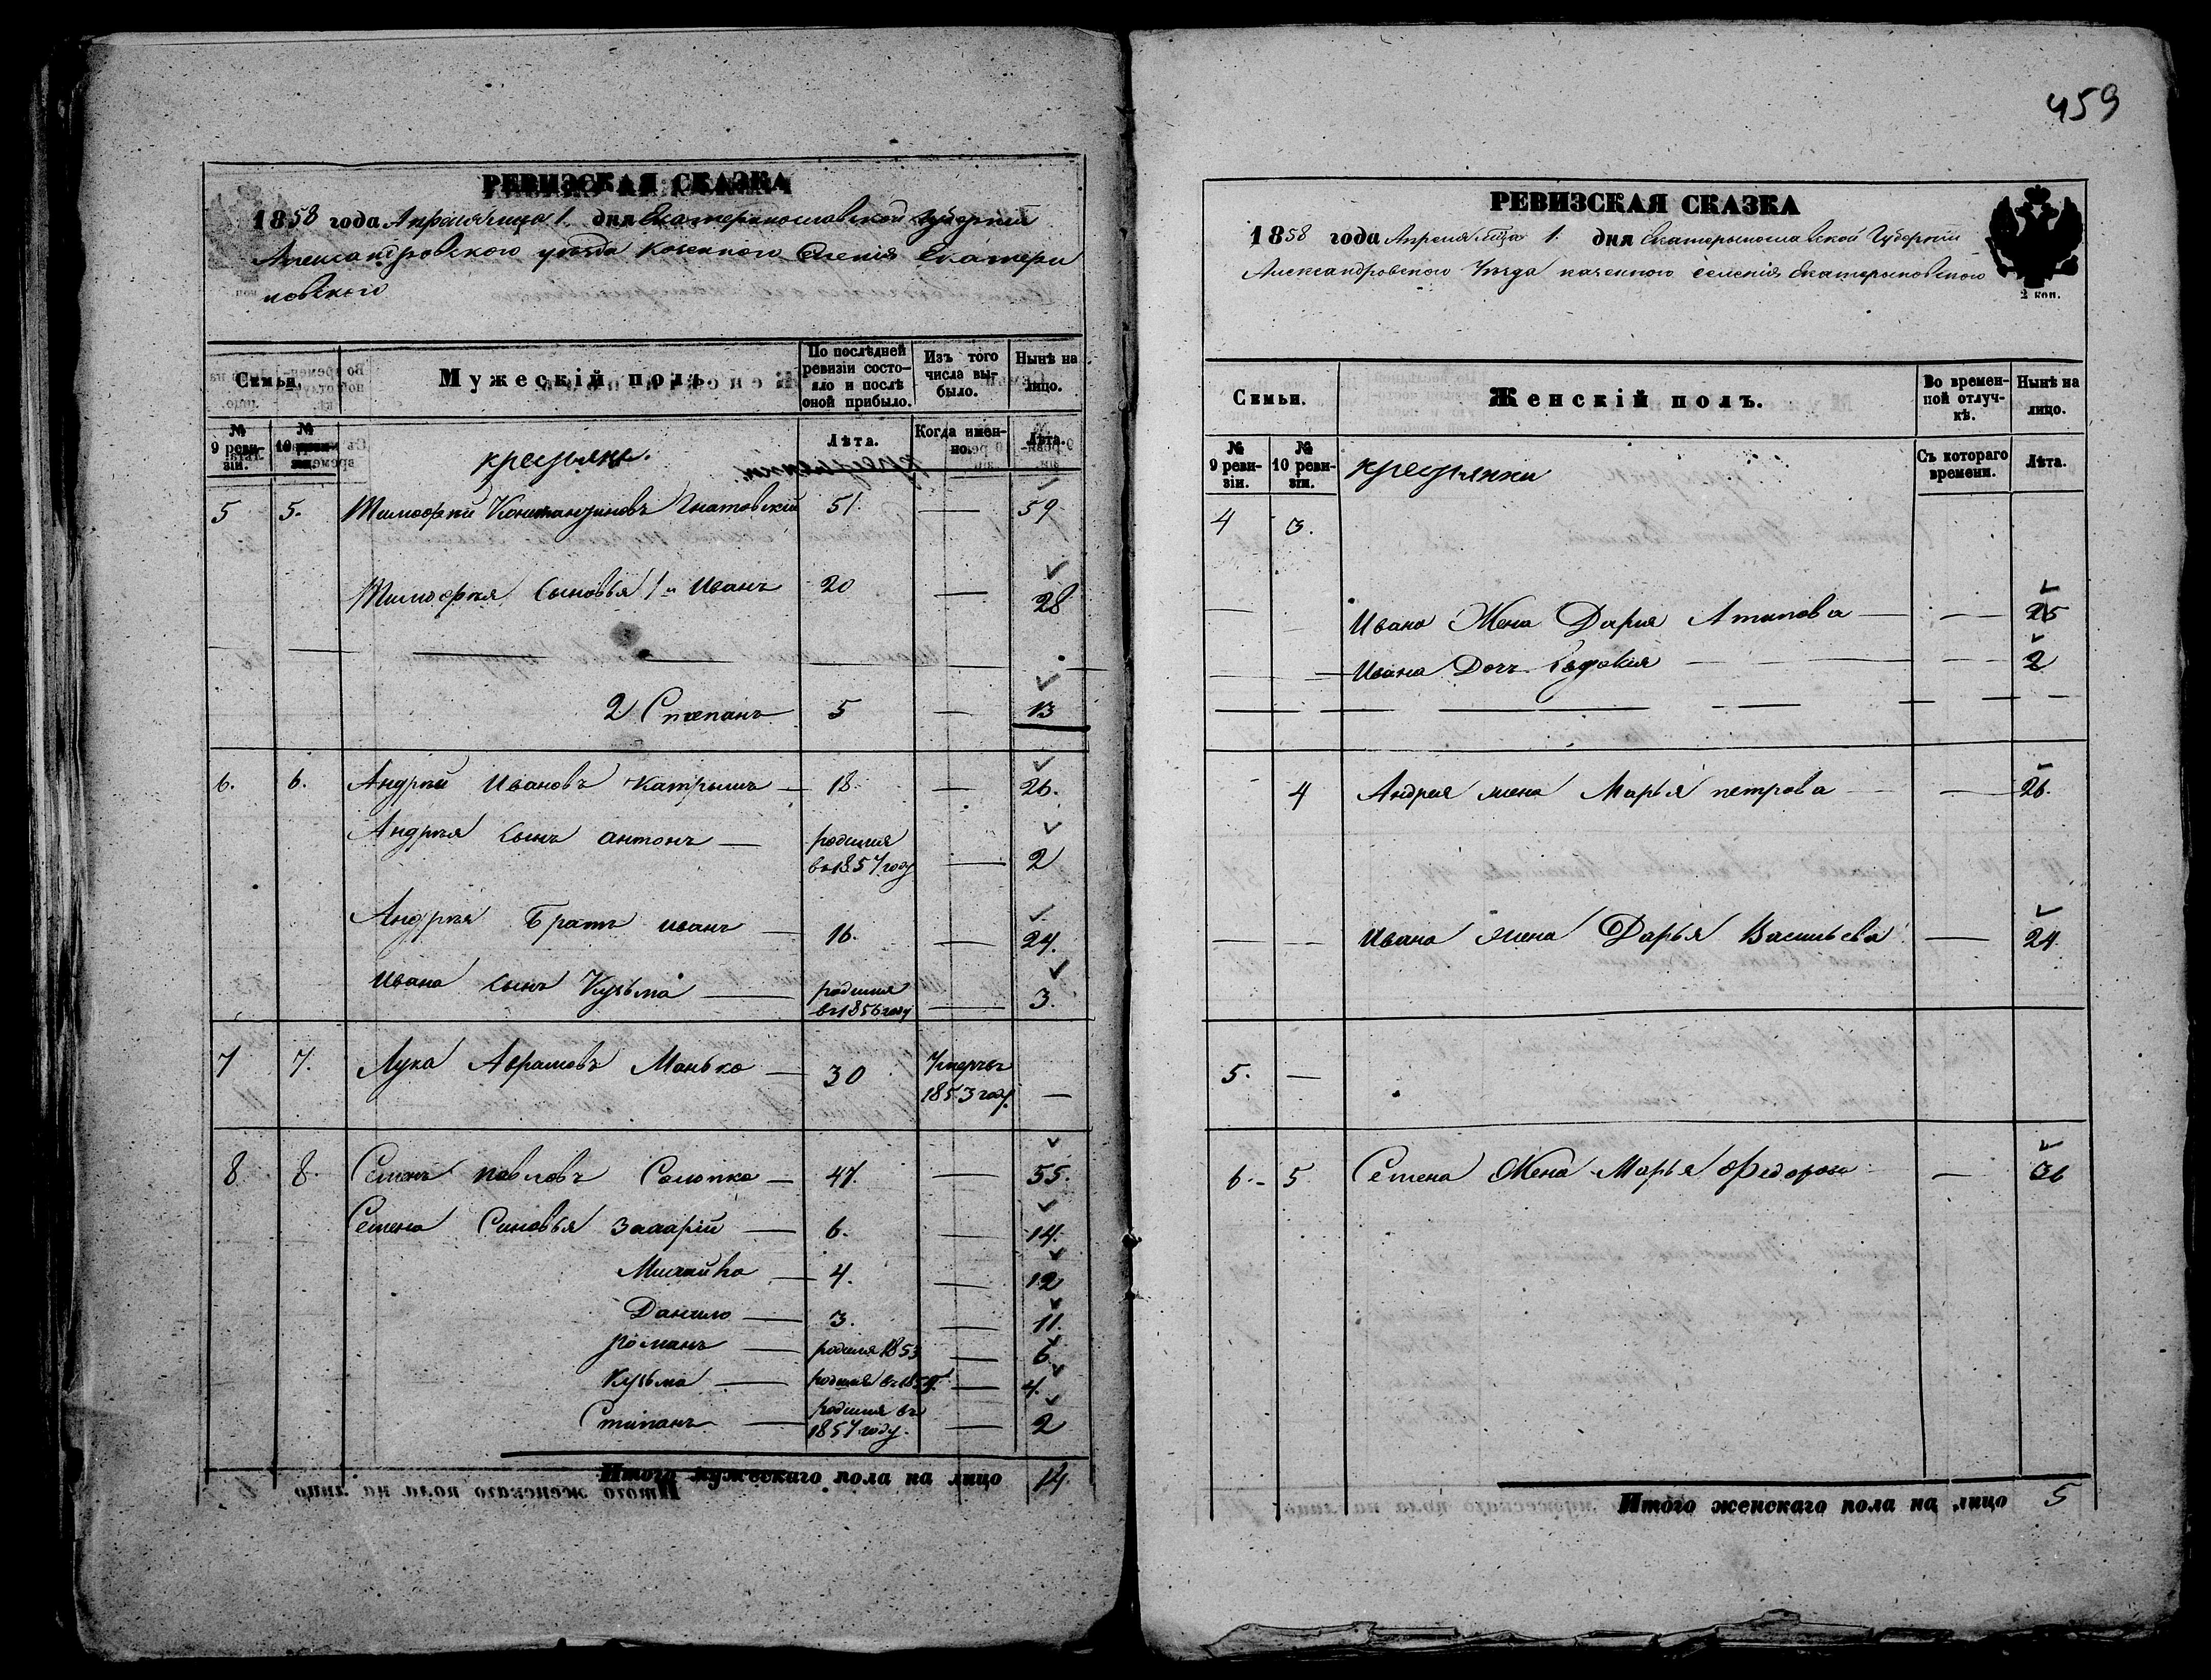 РЕВИЗСКАЯ СКАЗКА
1858 года Апреля м̃ца 1. дня Екатеринославской Губерніи
Александровского уѣзда казенного Селенія Екатери
новского
Семьи.
Мужескій полъ.
По послѣдней ревизіи состояло и послѣ оной прибыло.
Изъ того числа выбыло.
Нынѣ на лицо.
№ 9 ревизіи.
№ 10 ревизіи.
крестьяне.
Лѣта.
Когда именно.
Лѣта.
5 5. Тимофѣй Константиновъ Гнатовскій 51. — 59
Тимофѣя Сыновья 1й Иванъ 20 — 28
2 Степанъ 5 — 13
6. 6. Андрѣй Ивановъ Катрышъ — 18. — 26.
Андрѣя Сынъ антонъ — родился в 1857 году — 2
Андрѣя Братъ иванъ — 16. — 24.
Ивана сынъ Кузьма — родился въ 1856 году — 3.
7 7. Лука Аврамовъ Манько — 30 Умеръ въ 1853 году. —
8 8. Семенъ павловъ Солопко — 47. — 55.
Семена Синовья Захарій — 6. — 14.
Михайло — 4. — 12
Данило — 3. — 11.
Романъ — родился 1853 — 6
Кузьма — родился въ — 4.
Стипанъ — родился въ 1857 году. — 2
Итого мужескаго пола на лицо 14.
459
РЕВИЗСКАЯ СКАЗКА
1858 года Апреля м̃ца 1. дня Екатерынославской Губерніи
Александровского Уѣзда казенного селенія Екатерыновского
2 коп.
Семьи.
Женскій полъ.
Во временной отлучкѣ.
Нынѣ на лицо.
№ 9 ревизіи.
№ 10 ревизіи.
крестьянки
Съ котораго времени.
Лѣта.
4 3.
Ивана Жена Дарія — — 25
Ивана Дочь Евдокия — — 2
4 Андрея жена Марья петрова — — 26.
Ивана жена Дарья Васильева — 24.
5. —
6. - 5 Семена Жена Марья Федорова — 36
Итого женскаго пола на лицо 5